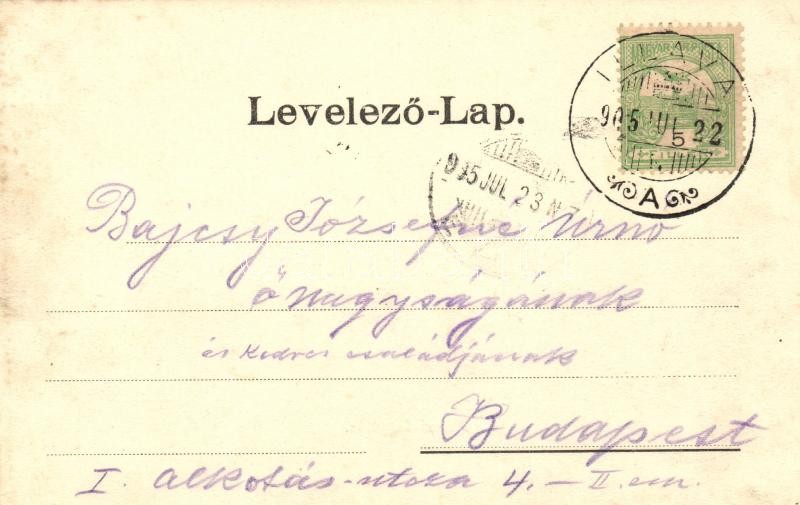 MAGYAR KIR. POSTA
ILLAVA
905 JUL 22
5
A
Levelező-Lap.
905 JUL 23
Bajcsy Józsefné Úrnő
őnagyságának
és kedves családjának
Budapest
I. Alkotás-utcza 4. – II. em.